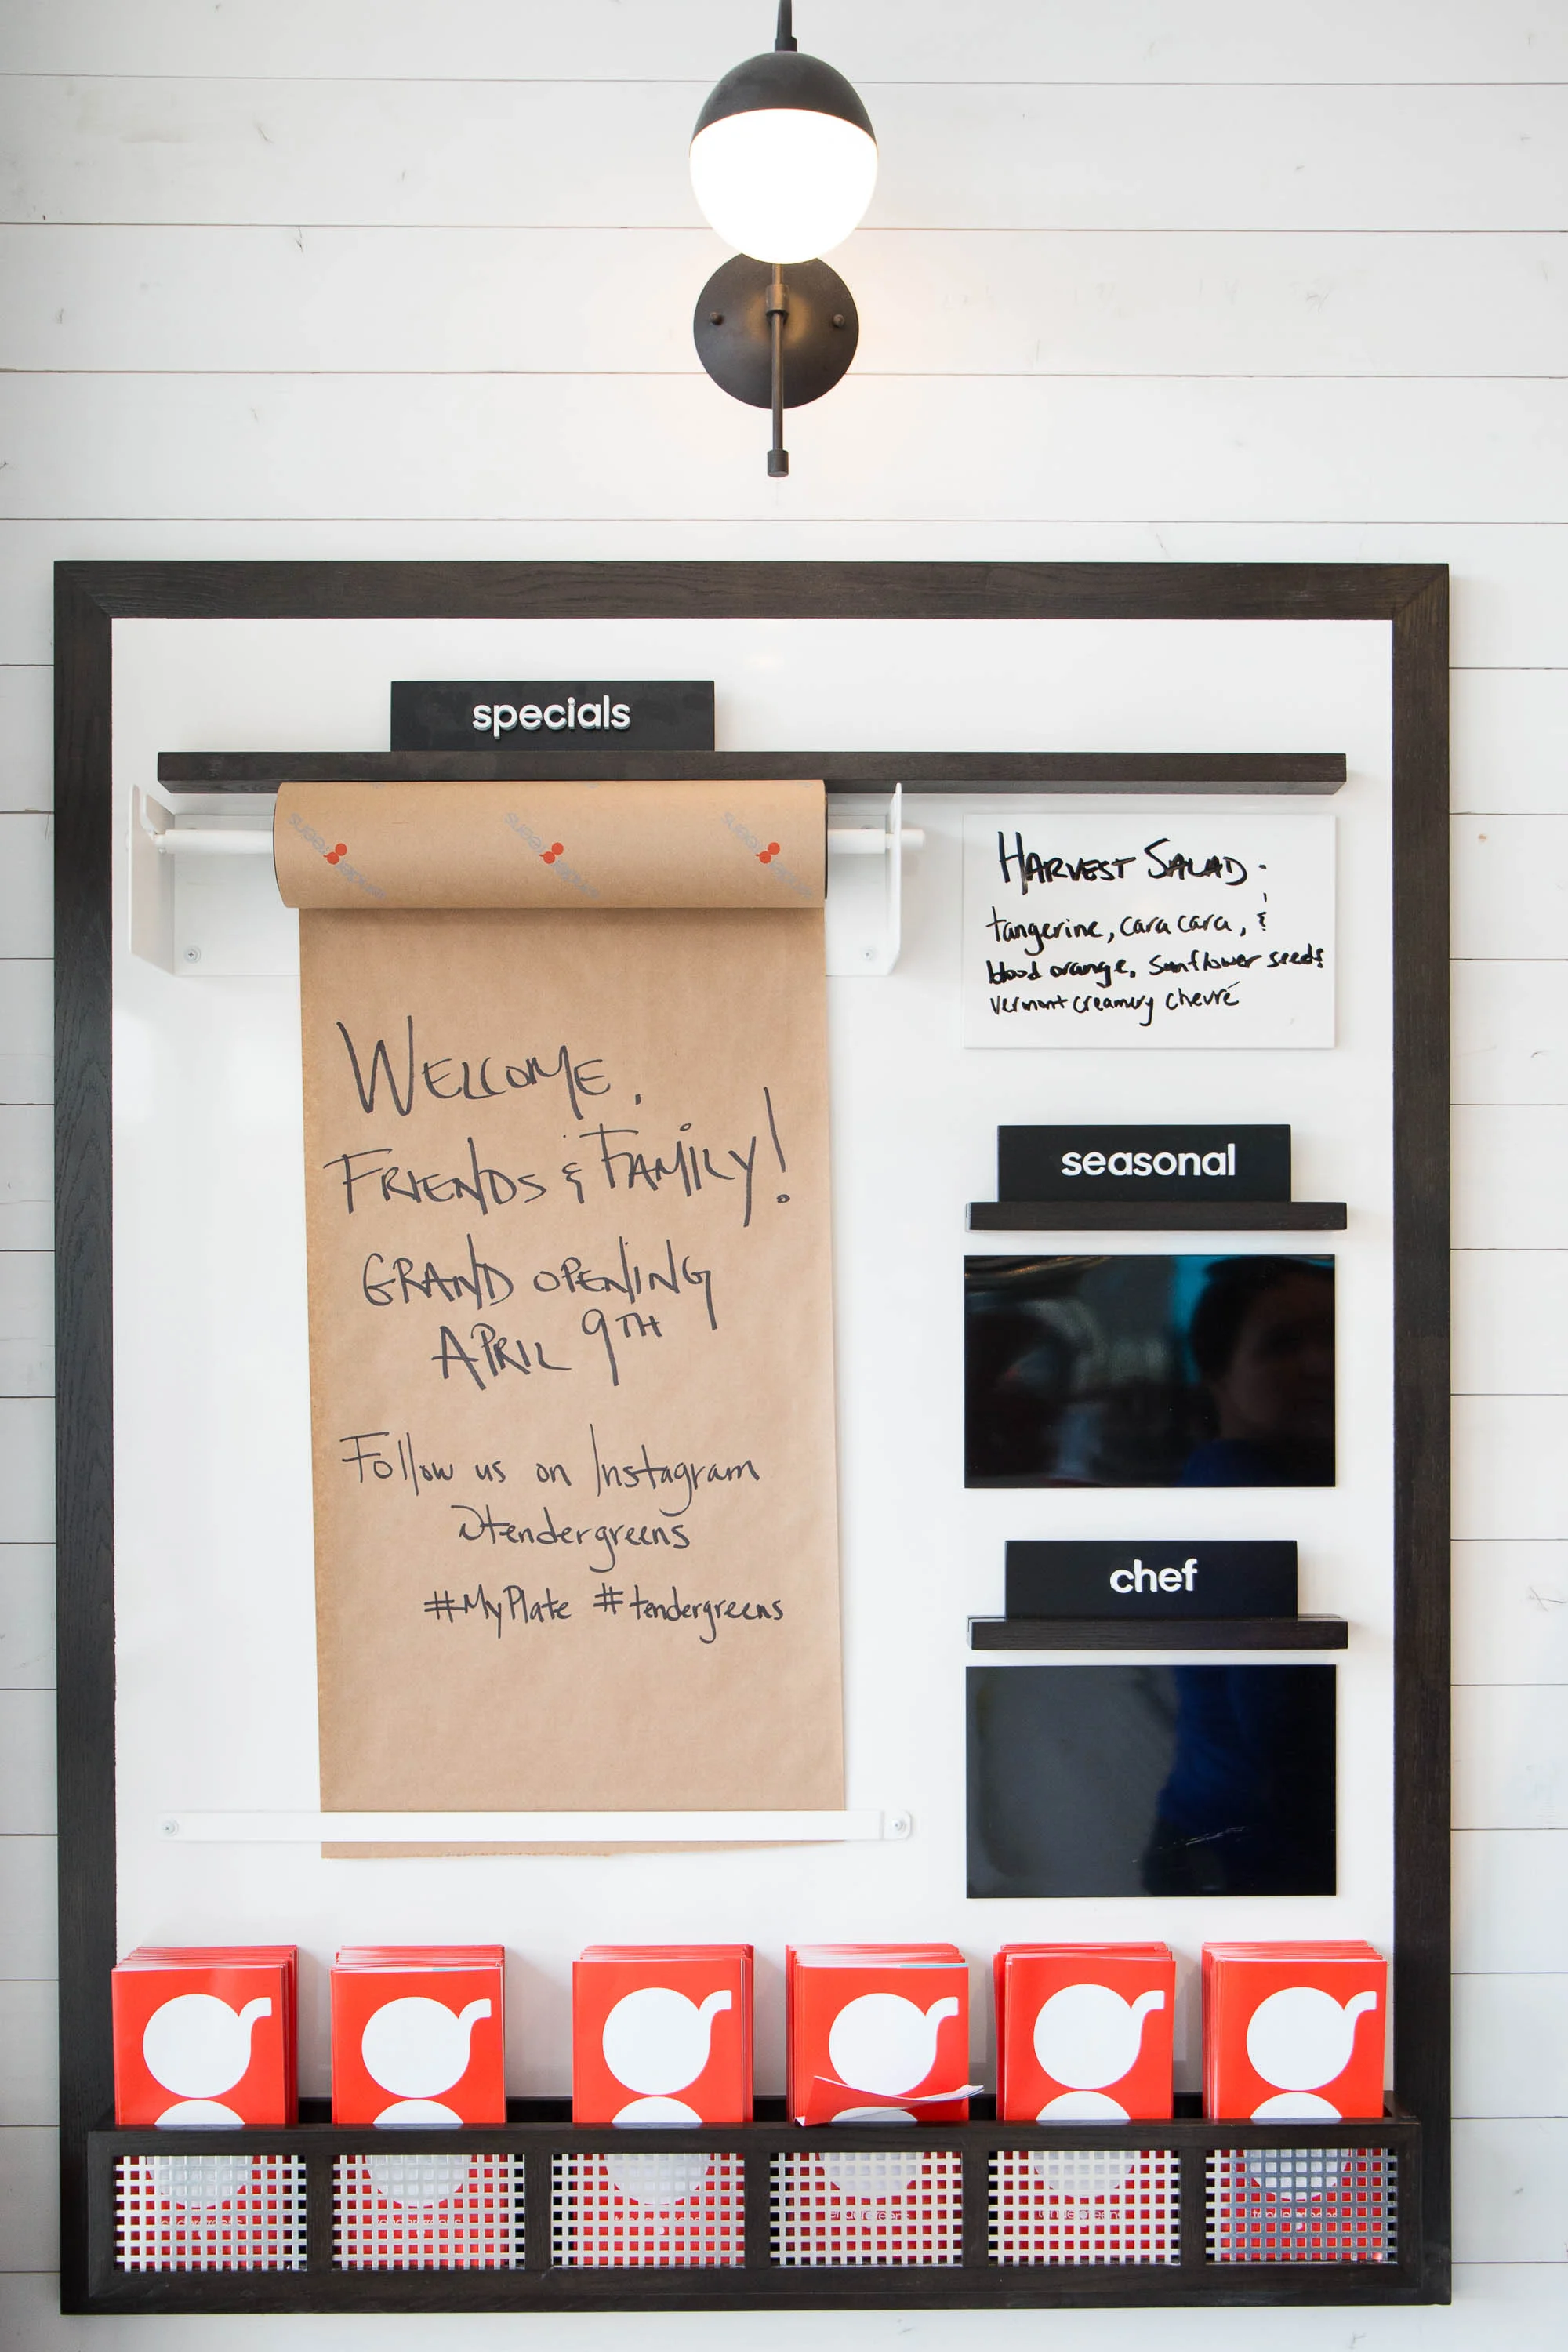 specials
WELCOME,
FRIENDS & FAMILY!
GRAND OPENING
APRIL 9TH
Follow us on Instagram
@tendergreens
#MyPlate #tendergreens
HARVEST SALAD-
tangerine, cara cara, &
blood orange, sunflower seeds
vermont creamery chevré
seasonal
chef